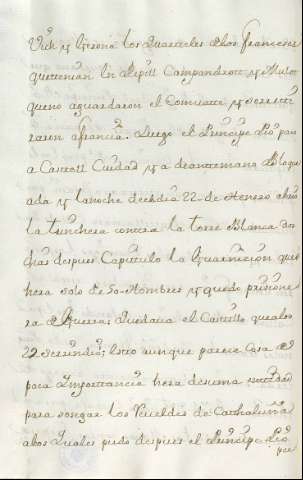 Vick y Gerona los Quarteles a los franceses
que tenian en Ripoll Campandron y
que no aguardaron el Combate y se retti
raron a francia. Luego el Principe Pio paso
a Ciudad y a de antemana Bloque
ada y la noche del dia 22 de Henero abrio
la trinchera contra la torre Blanca dos
dias despues Capitulo la Guarnicion que
hera solo de 50 Hombres y quedo prisione
ra de Guerra Quedava el Castillo que a los
29 se rindio; esto aunque parece Cosa de
poca Importancia hera de suma
para sosegar los Rebeldes de Cathaluña
a los Quales pudo despues el Principe Pio